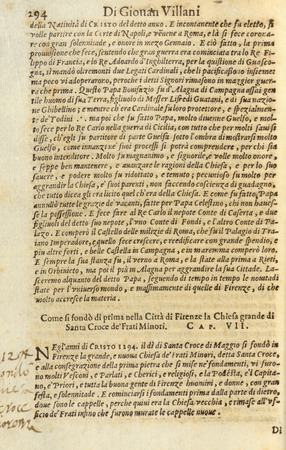 294 Di Giovan Villani
della Natività di CRISTO del detto anno. E incontanente che fu eletto, si
volle partire con la Corte di Napoli, e venne a Roma, e là si fece coronare
con gran solennitade, e onore in mezo Gennaio. E ciò fatto, la prima
provvisione che fece, sentendo che gran guerra era cominciata tra lo Re Fi-
lippo di Francia, e lo Re Adoardo d'Inghilterra, per la quistione di Guasco-
gna, si mandò oltremonti due Legati Cardinali, che li pacificassono insieme:
ma poco vi adoperarono, perciocchè i detti Signori rimasono in maggior guer-
ra che prima. Questo Papa Bonifazio fu d'Alagna di Campagna assai gen-
tile huomo di sua Terra, figliuolo di Messer Lifredi Guatani, e di sua nazio-
ne Ghibellino; e mentre ch'era Cardinale fu loro protettore, e spezialmen-
te de' Todini. ma poi che fu fatto Papa, molto divenne Guelfo, e mol-
to fece per lo Re Carlo nella guerra di Cicilia, con tutto che per molti savi si
disse, ch'egli fu partitore di parte Guelfa sotto l'ombra di mostrarsi molto
Guelfo, come innanzi ne' suoi processi si potrà comprendere, per chi sia
buono intenditore. Molto fu magnanimo, e signorile, e volle molto onore,
e seppe ben mantenere, e avanzare le ragioni della Chiesa, e per lo suo
savere, e podere molto fu ridottato, e temuto; pecunioso fu molto per
aggrandire la Chiesa, e' suoi parenti, non faccendo coscienza di guadagno,
che tutto dicea gli era licito quel ch'era della Chiesa. E come fu fatto Papa
annullò tutte le grazie de' vacanti, fatte per Papa Celestino, chi non havesse
la possessione. E fece fare al Re Carlo il nepote Conte di Caserta, e due
figliuoli del detto suo nepote, l'uno Conte di Fondi, e l'altro Conte di Pa-
lazzo. E comperò il Castello delle milizie di Roma, che fu il Palagio di Tra-
iano Imperadore, e quello fece crescere, e redificare con grande spendio, e
più altre forti, e belle Castella in Campagna, e in maremma comperò loro.
E sempre la sua stanza fu, il verno a Roma, e la state alla prima a Rieti,
e in Orbinieto, ma poi il più in Alagna per aggrandire la sua Cittade. La-
sceremo alquanto del detto Papa, seguendo di tempo in tempo le novitadi
state per l'universo mondo, e massimamente di quelle di Firenze, di che
molto accresce la materia.
Come si fondò di prima nella Città di Firenze la Chiesa grande di
Santa Croce de' Frati Minori. CAP. VII.
1294
NEgl'anni di CRISTO 1294. il dì di Santa Croce di Maggio si fondò in
Firenze la grande, e nuova Chiesa de' Frati Minori, detta Santa Croce,
e alla consegrazione della prima pietra che si mise ne' fondamenti, vi furo-
no molti Vescovi, e Parlati, e Cherici, e religiosi, e la Podestà, e'l Capita-
no, e' Priori, e tutta la buona gente di Firenze huomini, e donne, con gran
festa, e solennitade. E cominciarsi i fondamenti prima dalla parte di dietro,
dove sono le cappelle, perchè quini era la Chiesa vecchia, e rimase all'uf-
ficio de' Frati infino che furono murate le cappelle nuove.
Di